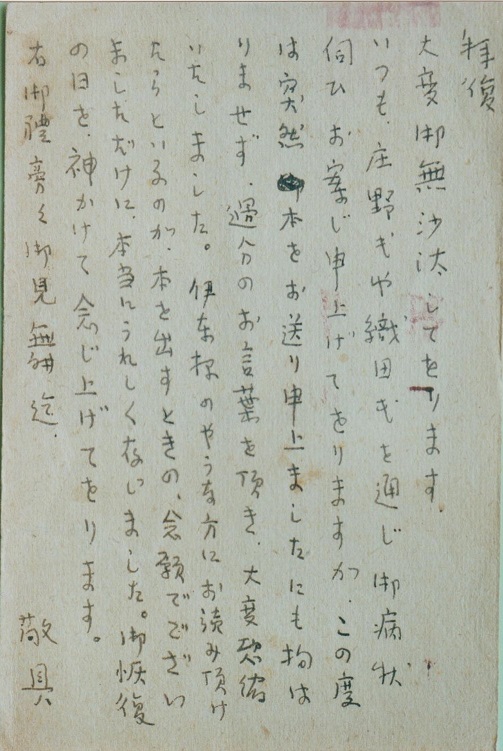 拝復
大変御無沙汰してをります
いつも、庄野氏や織田氏を通じ御病状
伺ひお案じ申上げてをりますが、この度
は突然本をお送り申上ましたにも拘は
りませず、過分のお言葉を頂き、大変恐縮
いたしました。伊東様のやうな方にお読み頂け
たらといふのが、本を出すときの、念願でござい
ましただけに、本当にうれしく存じました。御恢復
の日を、神かけて念じ上げてをります。
右御禮旁々御見舞迄、
敬具